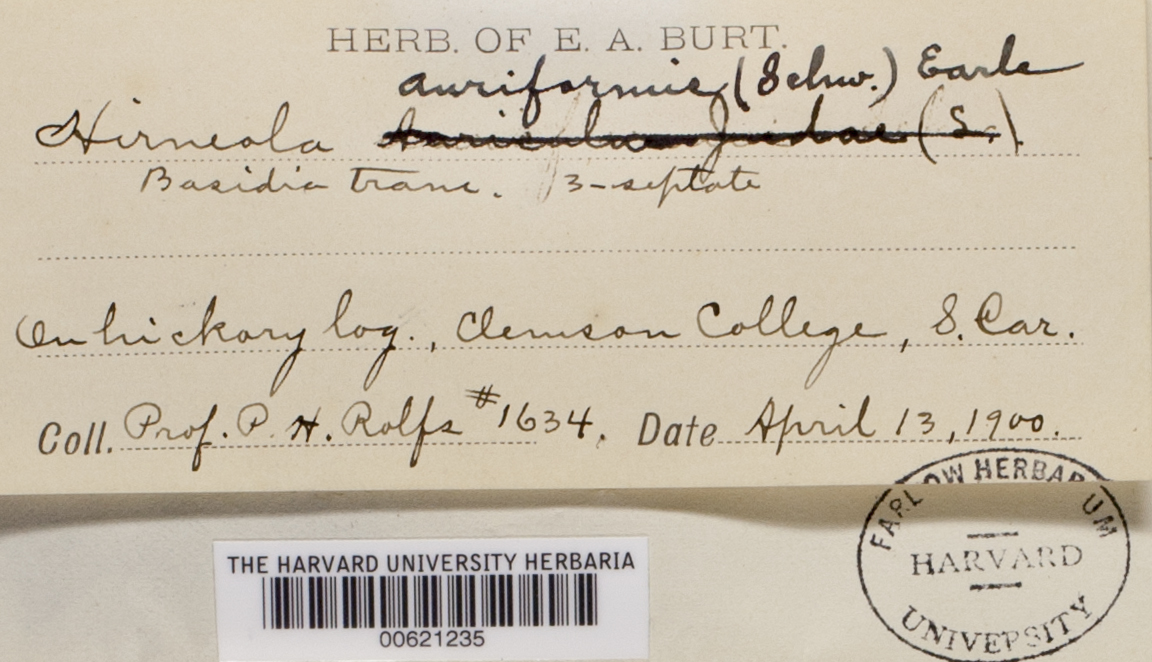 HERB. OF E. A. BURT.
auriformis (Schw.) Earle
Hirneola Auricula Judae (S.)
Basidia tranc. 3-septate
On hickory log., Clemson College, S. Car.
Coll. Prof. P. H. Rolfs #1634. Date April 13, 1900.
FARLOW HERBARIUM
HARVARD
UNIVERSITY
THE HARVARD UNIVERSITY HERBARIA
00621235